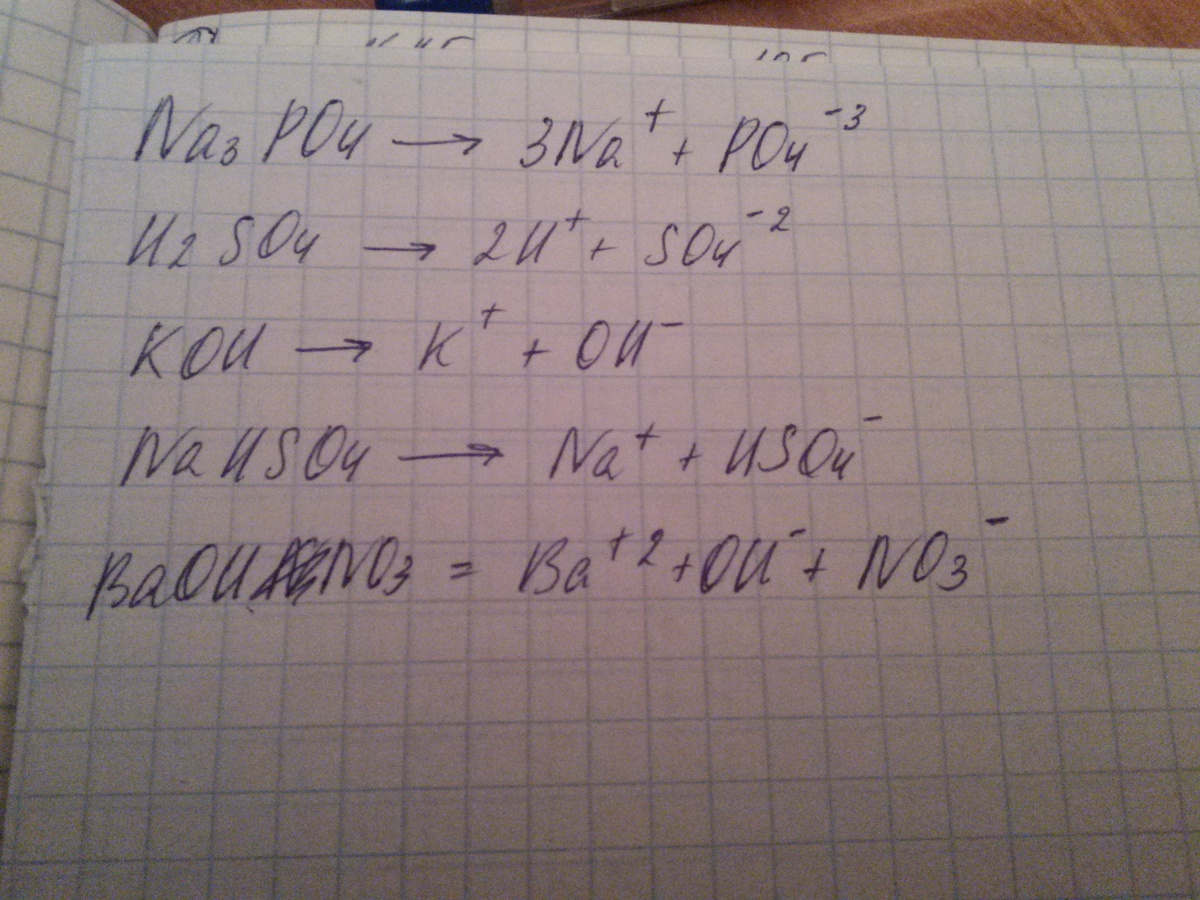 Na₃PO₄ → 3Na⁺ + PO₄⁻³
H₂SO₄ → 2H⁺ + SO₄⁻²
KOH → K⁺ + OH⁻
NaHSO₄ → Na⁺ + HSO₄⁻
BaOHNO₃ = Ba⁺² + OH⁻ + NO₃⁻